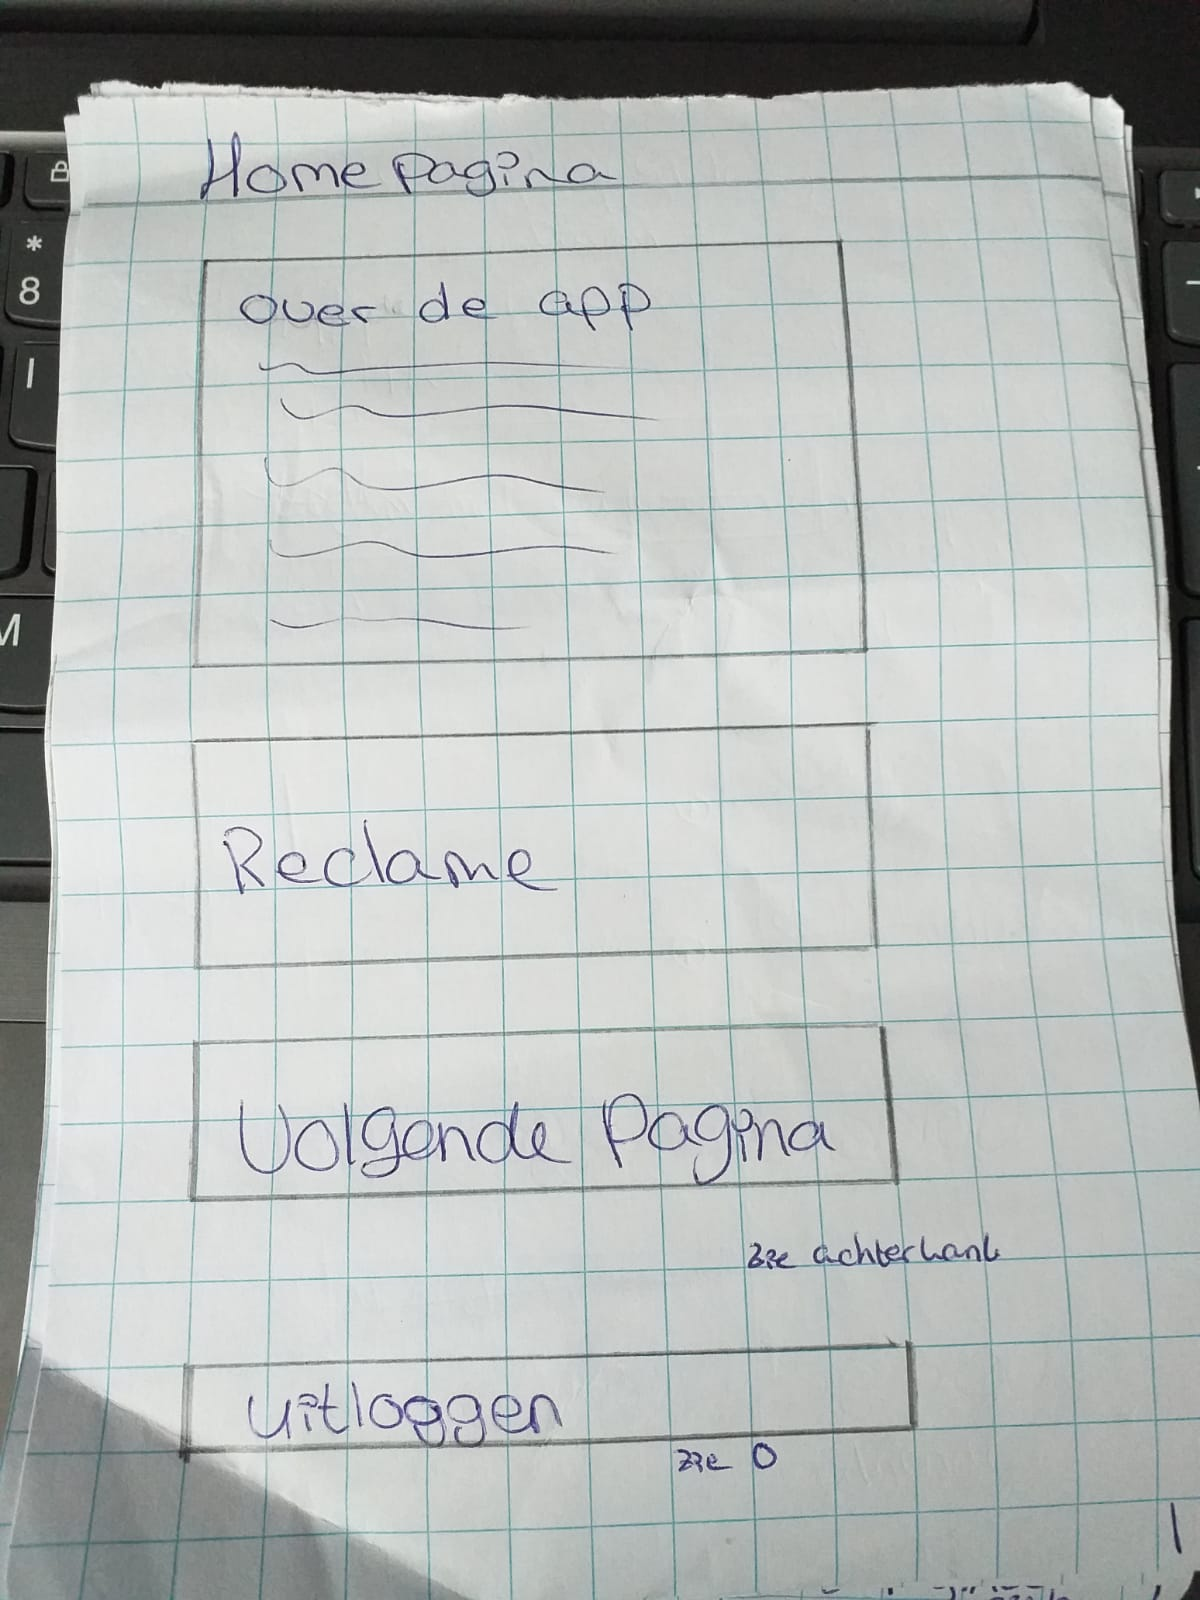 Home pagina
over de app
Reclame
Volgende Pagina
zie achterkant
uitloggen
zie 0
1
*
8
M